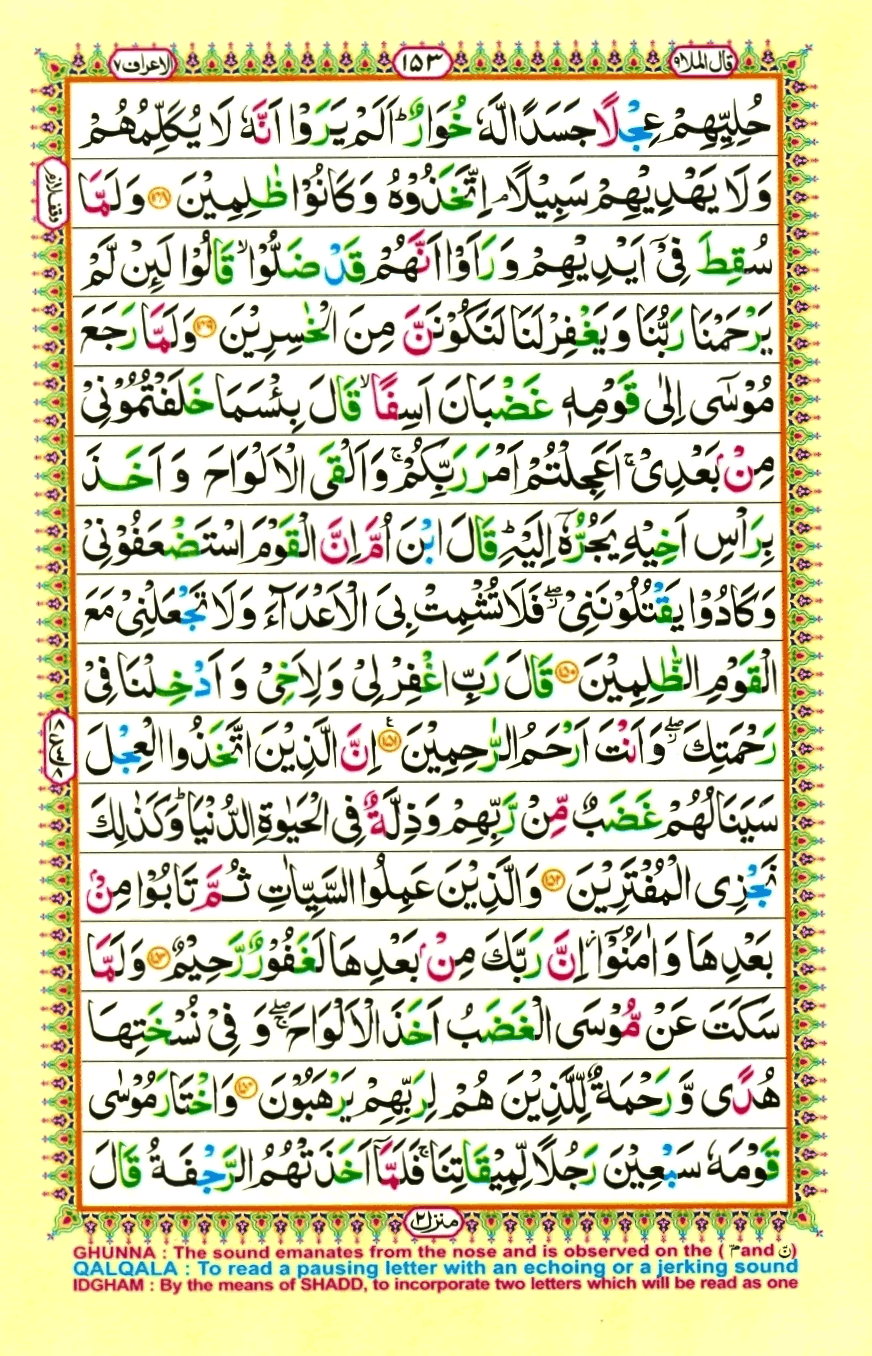 قال الملا۹ ۱۵۳ الاعراف۷
حُلِيِّهِمْ عِجْلًا جَسَدًا لَّهٗ خُوَارٌ ؕ اَلَمْ يَرَوْا اَنَّهٗ لَا يُكَلِّمُهُمْ
وَلَا يَهْدِيْهِمْ سَبِيْلًا ۘ اِتَّخَذُوْهُ وَكَانُوْا ظٰلِمِيْنَ ﴿۱۴۸﴾ وَلَمَّا
سُقِطَ فِيْۤ اَيْدِيْهِمْ وَرَاَوْا اَنَّهُمْ قَدْ ضَلُّوْا ۙ قَالُوْا لَئِنْ لَّمْ
يَرْحَمْنَا رَبُّنَا وَيَغْفِرْ لَنَا لَنَكُوْنَنَّ مِنَ الْخٰسِرِيْنَ ﴿۱۴۹﴾ وَلَمَّا رَجَعَ
مُوْسٰۤى اِلٰى قَوْمِهٖ غَضْبَانَ اَسِفًا ۙ قَالَ بِئْسَمَا خَلَفْتُمُوْنِيْ
مِنْۢ بَعْدِيْ ۚ اَعَجِلْتُمْ اَمْرَ رَبِّكُمْ ۚ وَاَلْقَى الْاَلْوَاحَ وَاَخَذَ
بِرَاْسِ اَخِيْهِ يَجُرُّهٗۤ اِلَيْهِ ؕ قَالَ ابْنَ اُمَّ اِنَّ الْقَوْمَ اسْتَضْعَفُوْنِيْ
وَكَادُوْا يَقْتُلُوْنَنِيْ ۖ فَلَا تُشْمِتْ بِيَ الْاَعْدَآءَ وَلَا تَجْعَلْنِيْ مَعَ
الْقَوْمِ الظّٰلِمِيْنَ ﴿۱۵۰﴾ قَالَ رَبِّ اغْفِرْ لِيْ وَلِاَخِيْ وَاَدْخِلْنَا فِيْ
رَحْمَتِكَ ۖ وَاَنْتَ اَرْحَمُ الرّٰحِمِيْنَ ﴿۱۵۱﴾ اِنَّ الَّذِيْنَ اتَّخَذُوا الْعِجْلَ
سَيَنَالُهُمْ غَضَبٌ مِّنْ رَّبِّهِمْ وَذِلَّةٌ فِي الْحَيٰوةِ الدُّنْيَا ؕ وَكَذٰلِكَ
نَجْزِى الْمُفْتَرِيْنَ ﴿۱۵۲﴾ وَالَّذِيْنَ عَمِلُوا السَّيِّاٰتِ ثُمَّ تَابُوْا مِنْۢ
بَعْدِهَا وَاٰمَنُوْۤا ۫ اِنَّ رَبَّكَ مِنْۢ بَعْدِهَا لَغَفُوْرٌ رَّحِيْمٌ ﴿۱۵۳﴾ وَلَمَّا
سَكَتَ عَنْ مُّوْسَى الْغَضَبُ اَخَذَ الْاَلْوَاحَ ۖۚ وَفِيْ نُسْخَتِهَا
هُدًى وَّرَحْمَةٌ لِّلَّذِيْنَ هُمْ لِرَبِّهِمْ يَرْهَبُوْنَ ﴿۱۵۴﴾ وَاخْتَارَ مُوْسٰى
قَوْمَهٗ سَبْعِيْنَ رَجُلًا لِّمِيْقَاتِنَا ۚ فَلَمَّاۤ اَخَذَتْهُمُ الرَّجْفَةُ قَالَ
منزل۲
GHUNNA : The sound emanates from the nose and is observed on the ( مّ and نّ )
QALQALA : To read a pausing letter with an echoing or a jerking sound
IDGHAM : By the means of SHADD, to incorporate two letters which will be read as one